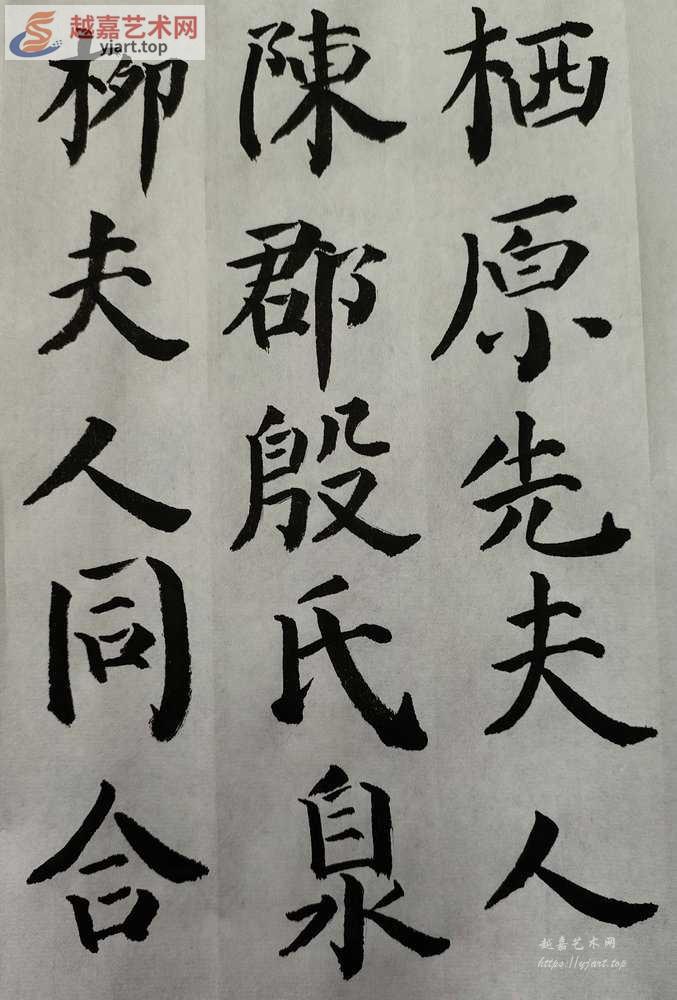 越嘉艺术网
yjart.top
栖原先夫人
陳郡殷氏泉
柳夫人同合
越嘉艺术网
https://yjart.top